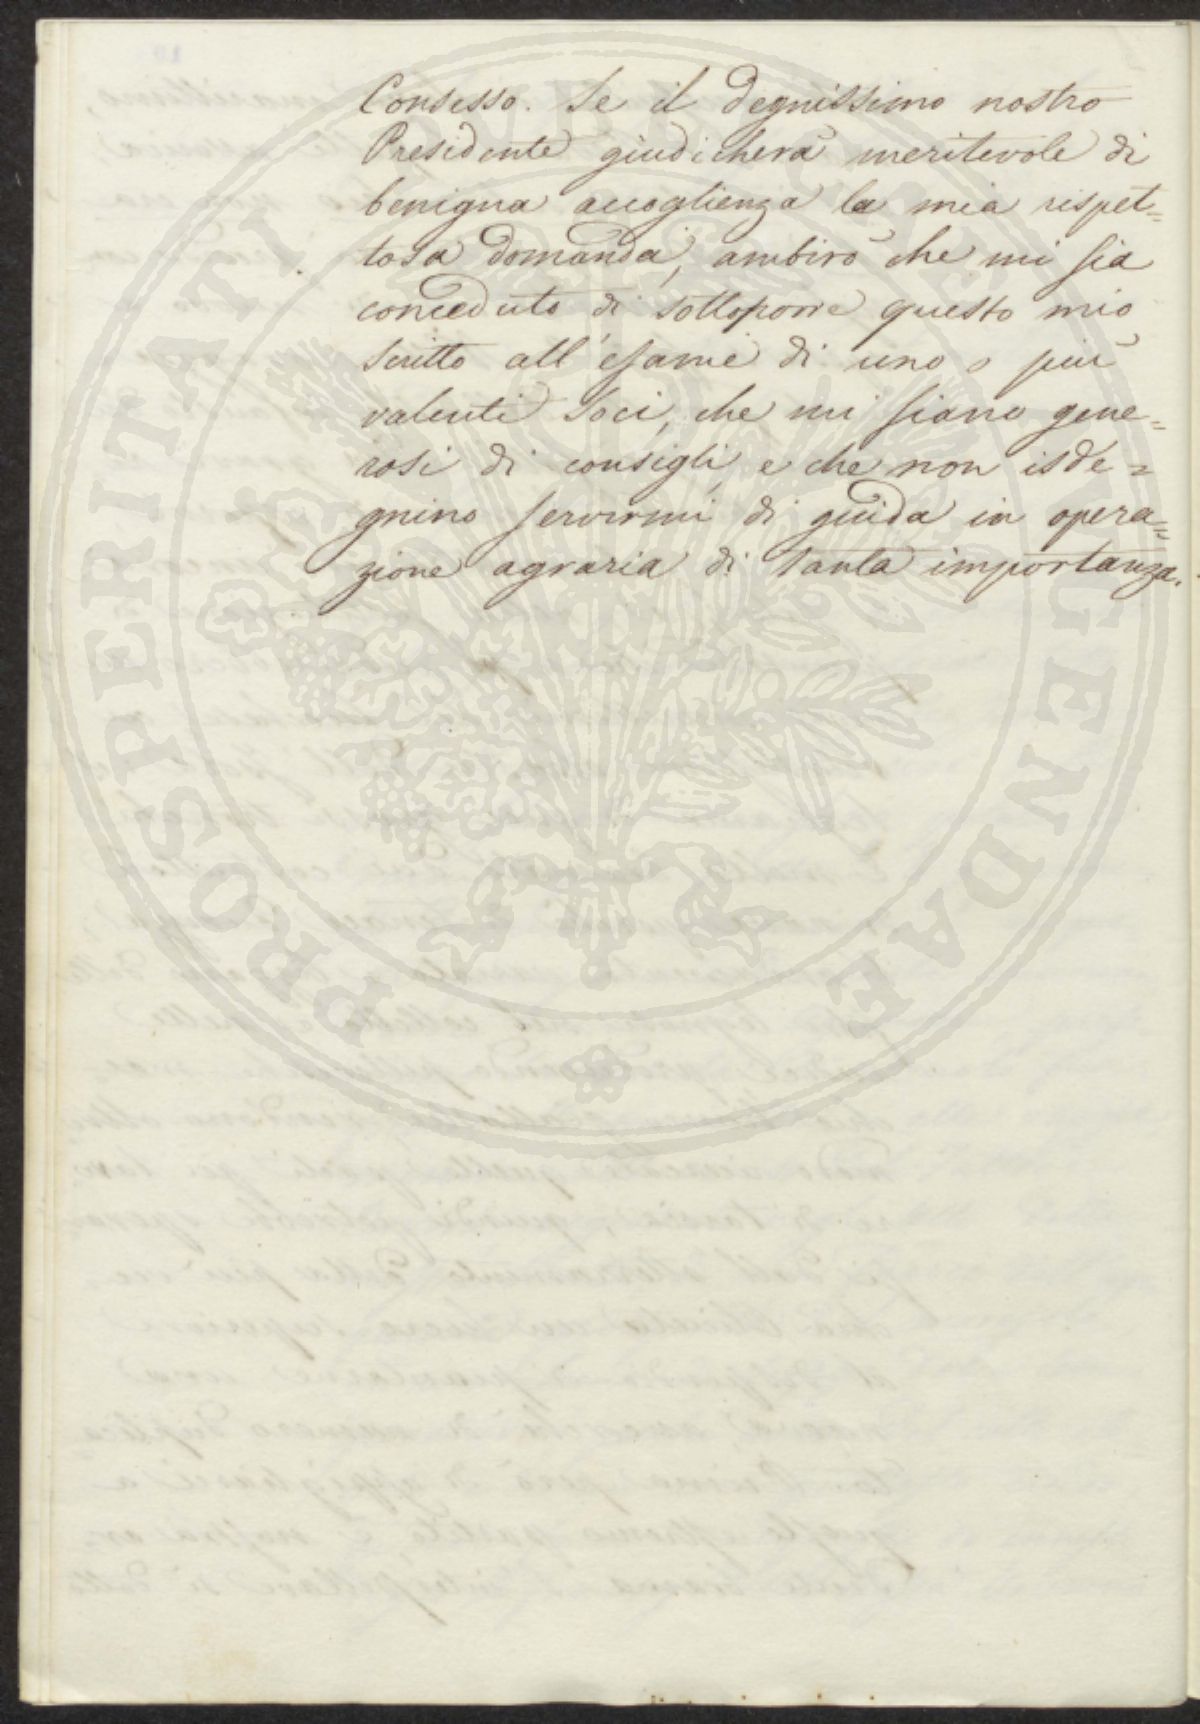 Consesso. Se il degnissimo nostro
Presidente giudicherà meritevole di
benigna accoglienza la mia rispet=
tosa domanda, ambirò che mi sia
conceduto di sottoporre questo mio
scritto all'esame di uno o più
valenti Soci, che mi siano gene=
rosi di consigli, e che non isde=
gnino servirmi di guida in opera=
zione agraria di tanta importanza.
PROSPERITATI PUBLICAE AUGENDAE